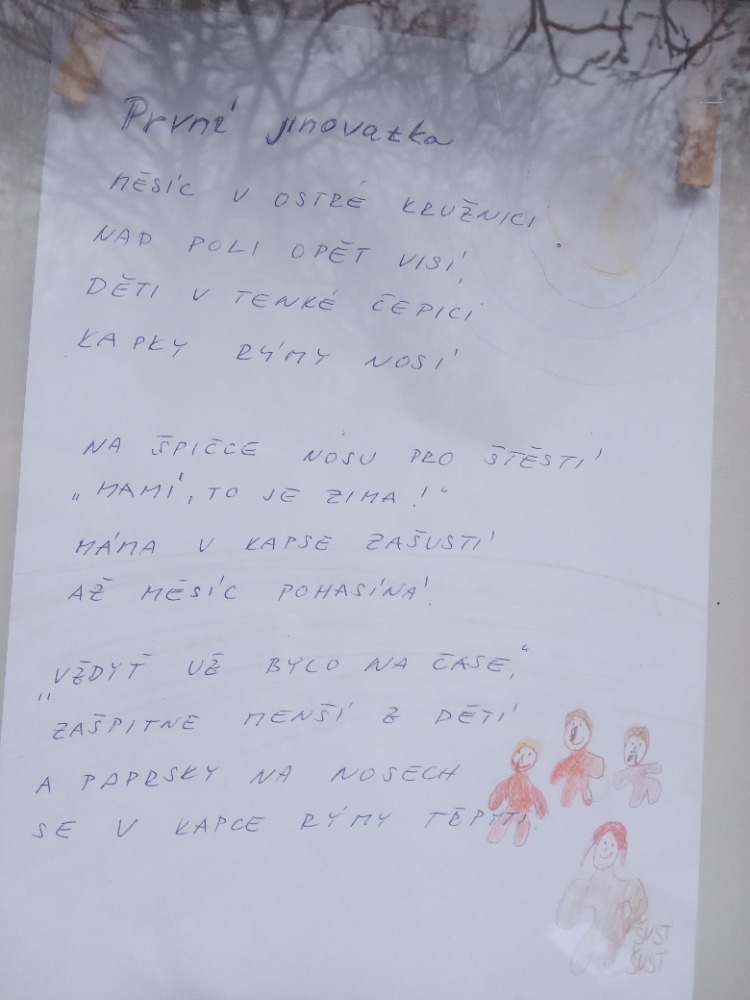 První jinovatka
MĚSÍC V OSTRÉ KRUŽNICI
NAD POLI OPĚT VISÍ,
DĚTI V TENKÉ ČEPICI
KAPKY RÝMY NOSÍ
NA ŠPIČCE NOSU PRO ŠTĚSTÍ
„MAMÍ, TO JE ZIMA!“
MÁMA V KAPSE ZAŠUSTÍ
AŽ MĚSÍC POHASÍNÁ.
„VŽDYŤ UŽ BYLO NA ČASE,“
ZAŠPITNE MENŠÍ Z DĚTÍ
A PAPRSKY NA NOSECH
SE V KAPCE RÝMY TŘPYTÍ.
ŠUST
ŠUST